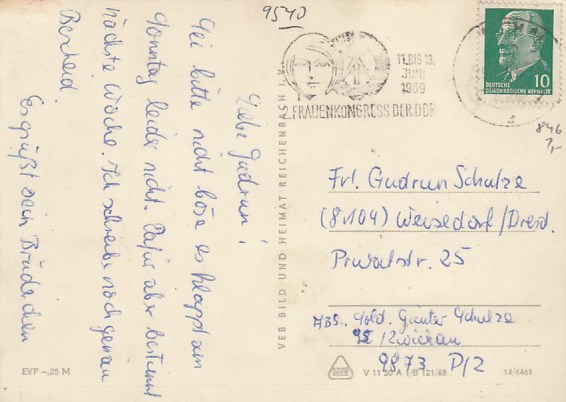 Liebe Gudrun!
Sei bitte nicht böse es klappt am
Sonntag leider nicht. Dafür aber bestimmt
nächste Woche. Ich schreibe noch genau
Bescheid
Es grüßt dein Brüderchen
9570
11. BIS 13.
JUNI
1969
FRAUENKONGRESS DER DDR
DEUTSCHE
DEMOKRATISCHE REPUBLIK
10
846
7,-
VEB BILD UND HEIMAT REICHENBACH i. V.
Frl. Gudrun Schulze
(8104) Weixdorf/Dresd.
Privatstr. 25
Abs. Sold. Günter Schulze
95 Zwickau
9873 D/2
EVP –,25 M
V 11 50 A 1/B 121/68
14/6461